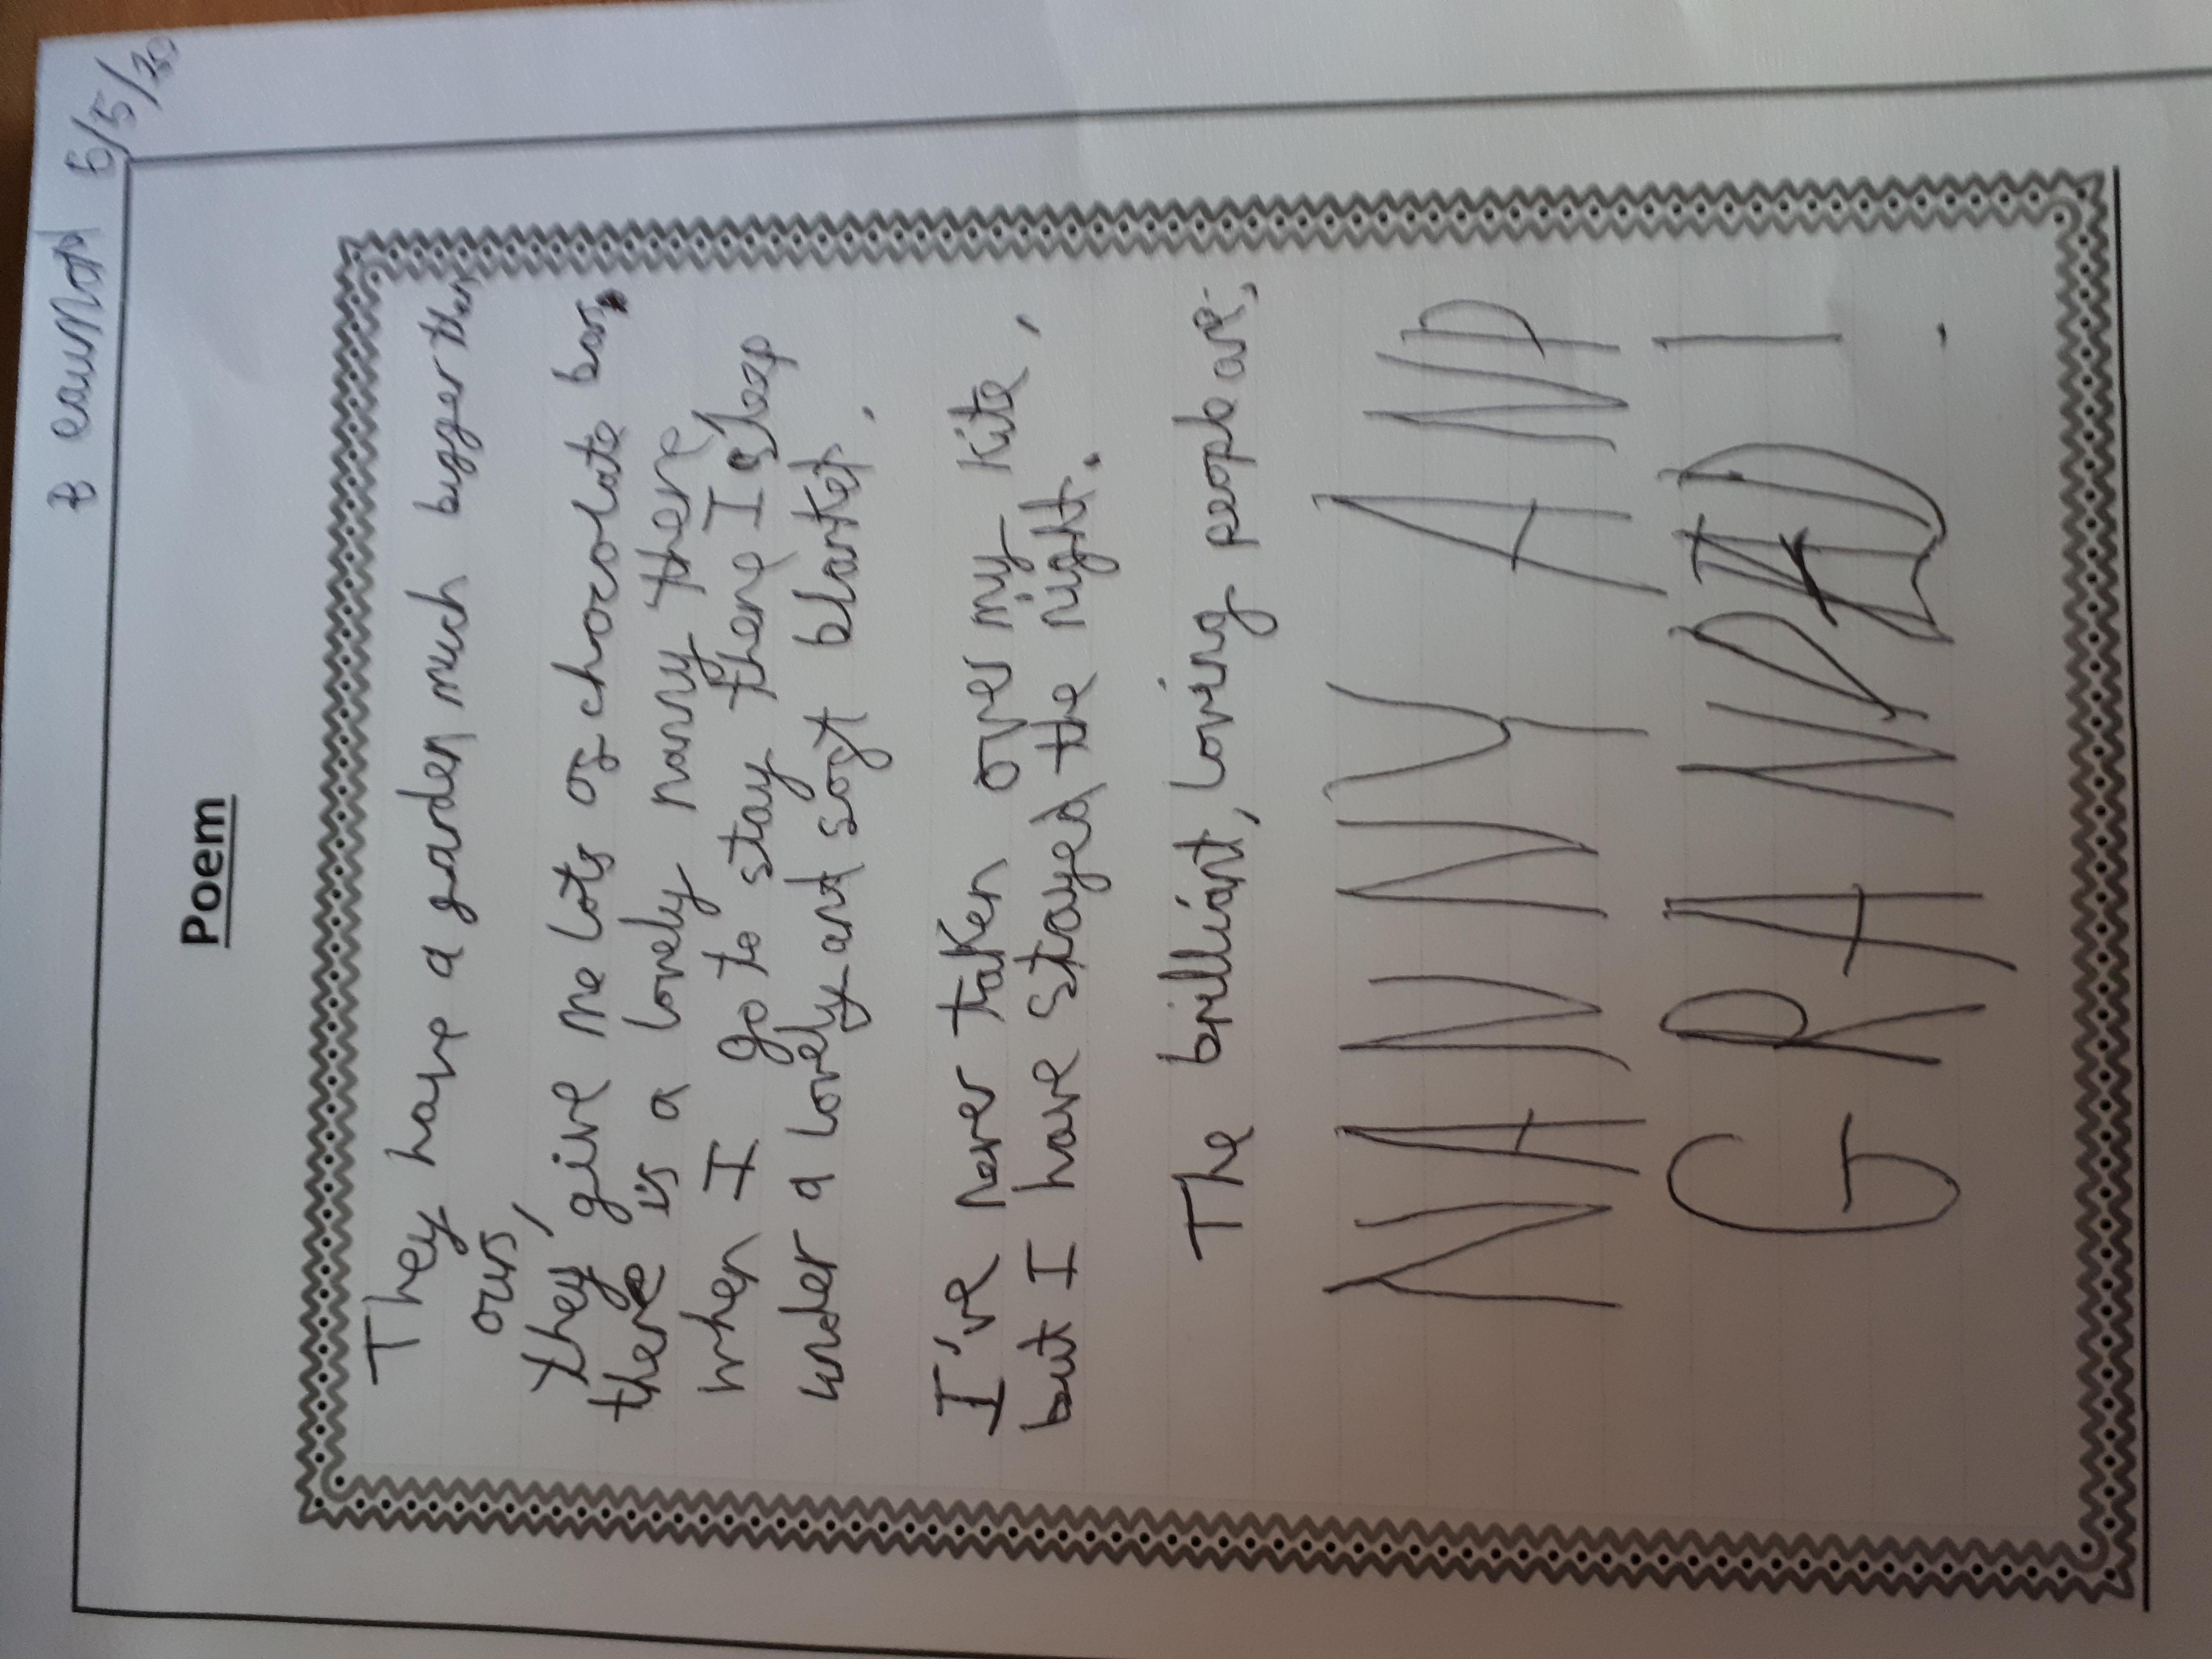 5/5/20
Poem
They have a garden much bigger then
ours,
they give me lots of chocolate bars,
there is a lovely nanny there
when I go to stay there I sleep
under a lovely and soft blanket.
I've never taken over my kite,
but I have stayed the night.
The brilliant, loving people are;
NANNY AND
GRANDAD!